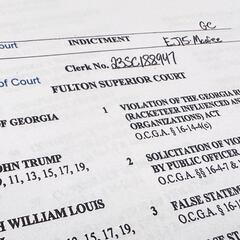 GC
Court
INDICTMENT
EJ15-McAfee
Clerk No. 23SC188947
of Court
FULTON SUPERIOR COURT
OF GEORGIA
1 VIOLATION OF THE GEORGIA R
(RACKETEER INFLUENCED AN
ORGANIZATIONS) ACT
O.C.G.A. § 16-14-4(c)
OHN TRUMP
9, 11, 13, 15, 17, 19,
2 SOLICITATION OF VIOLA
BY PUBLIC OFFICER
O.C.G.A. §§ 16-4-7 &
H WILLIAM LOUIS
13, 15, 17, 19,
3 FALSE STATEM
O.C.G.A. §